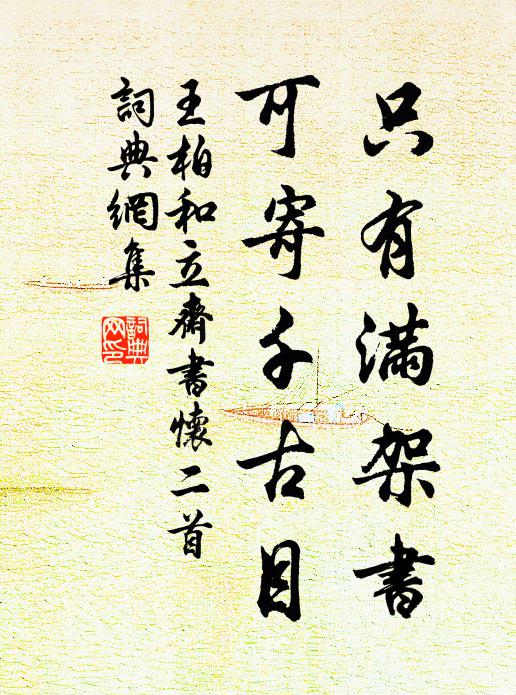 只有滿架書
可寄千古目
王柏和立齋書懷二首
詞典網集
詞典
网印